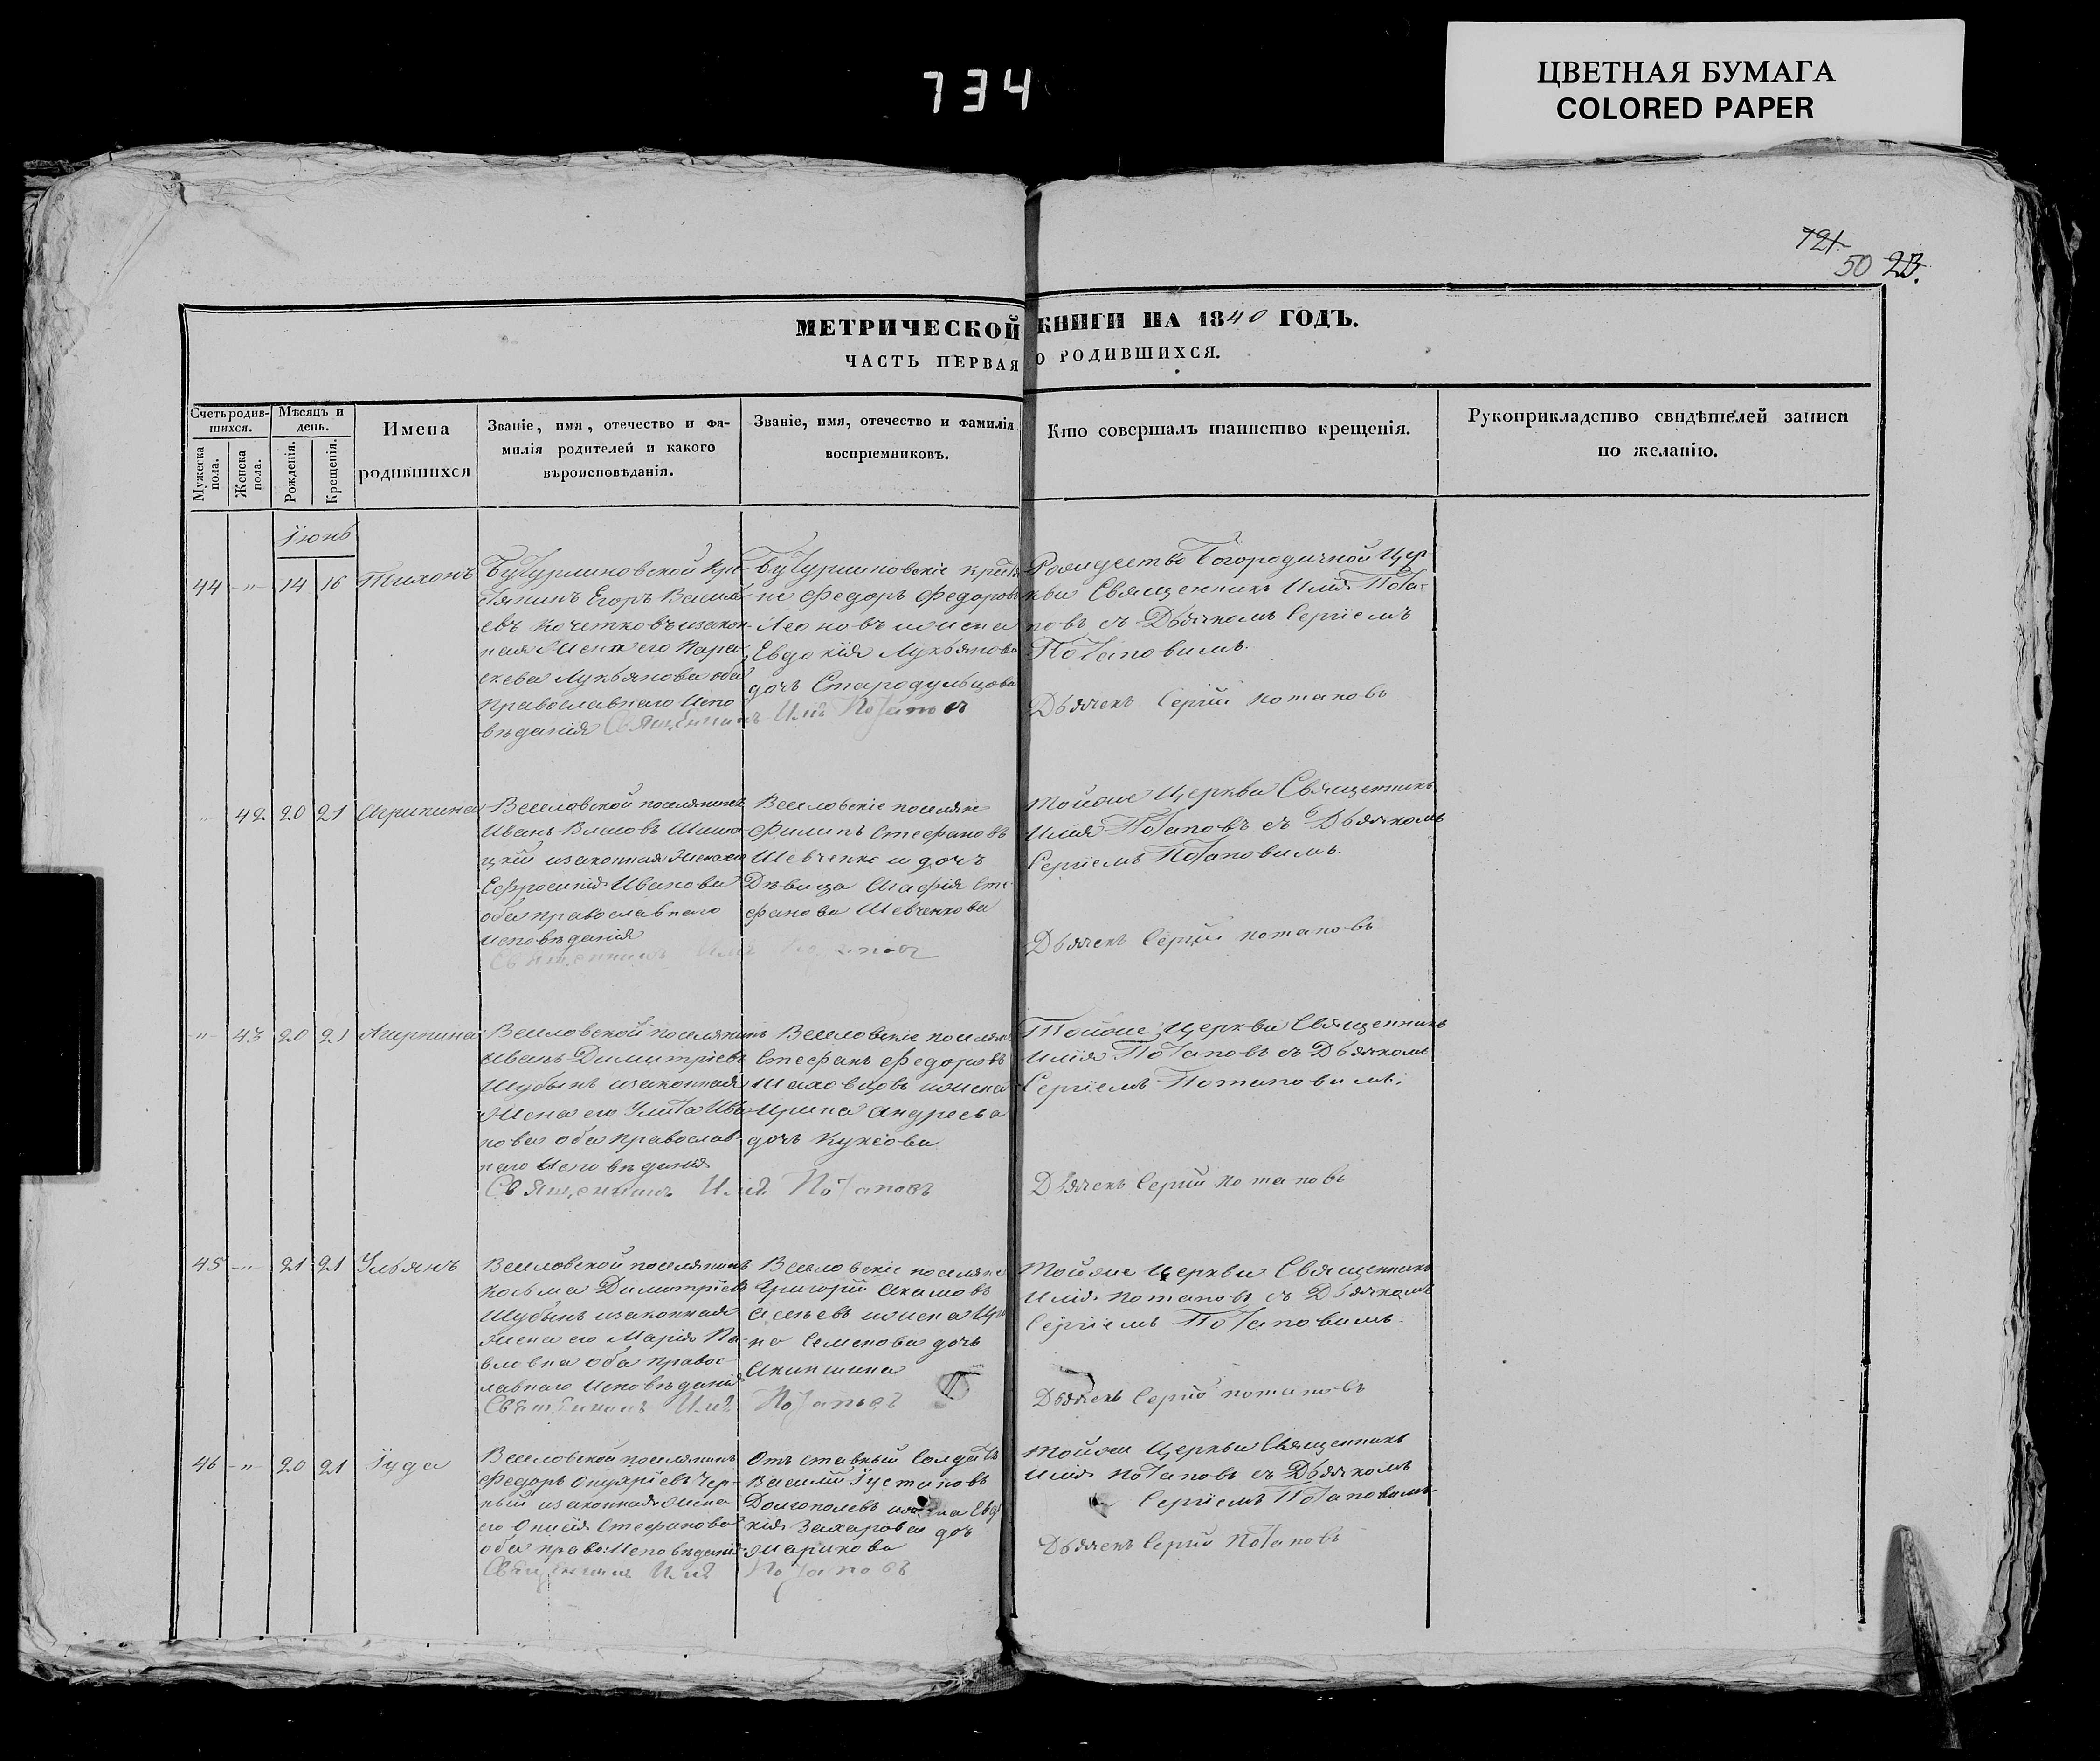 734
ЦВЕТНАЯ БУМАГА
COLORED PAPER
721.
50 23.
МЕТРИЧЕСКОЙ КНИГИ НА 1840 ГОДЪ.
ЧАСТЬ ПЕРВАЯ О РОДИВШИХСЯ.
Счетъ родив-
шихся.
Мужеска
пола.
Женска
пола.
Мѣсяцъ и
день.
Рожденія.
Крещенія.
Имена
родившихся
Званіе, имя, отечество и фа-
милія родителей и какого
вѣроисповѣданія.
Званіе, имя, отечество и фамилія
воспріемниковъ.
Кто совершалъ таинство крещенія.
Рукоприкладство свидѣтелей записи
по желанію.
Іюнь
44 -"- 14 16 Тихонъ
Бутурлиновской кре-
стянинъ Егоръ
евъ Кочетковъ изакон-
ная жена его Пара-
скева Лукьянова оба
православнаго испо
вѣданія Священникъ Илія Потаповъ
Бутурлиновскіе крестя
не Федоръ Федоровъ
Леоновъ ижена
Евдокія Лукьянова
дочь Стародубцова
Рождество Богородичной Цер-
кви Священникъ Илія Пота-
повъ съ Дьячкомъ Сергіемъ
Потаповимъ.
Дьячекъ Сергій Потаповъ
" 42 20 21 Агрипина
Веселовской поселянинъ
Иванъ Власовъ
цкій изаконная жена его
Ефросинія Иванова
оба православнаго
исповѣданія
Священникъ Илія Потаповъ
Веселовскіе поселяне
Филипъ Стефановъ
Шевченко и дочь
Дѣвица Агафія Сте-
фанова Шевченкова
Тойже Церкви Священникъ
Илія Потаповъ съ Дьячкомъ
Сергіемъ Потаповимъ.
Дьячекъ Сергій Потаповъ
-"- 43 20 21 Агрипина
Веселовской поселянинъ
Иванъ Димитріевъ
Шубынъ изаконная
жена его Улита Ива
нова оба православ-
наго исповѣданія
Священникъ Илія Потаповъ
Веселовскіе поселяне
Стефанъ Федоровъ
Шаховцовъ ижена
Ирина Андреева
дочь
Тойже Церкви Священникъ
Илія Потаповъ съ Дьячкомъ
Сергіемъ Потаповимъ.
Дьячекъ Сергій Потаповъ
45 -"- 21 21 Ульянъ
Веселовской поселянинъ
Косьма Димитріевъ
Шубынъ изаконная
жена его Марія Па-
вловна оба правос-
лавнаго исповѣданія
Священникъ Илія Потаповъ
Веселовскіе поселяне
Григорій Акимовъ
ижена Ири
на Семенова дочь
Акиншина
Тойже Церкви Священникъ
Илія Потаповъ съ Дьячкомъ
Сергіемъ Потаповимъ.
Дьячекъ Сергій Потаповъ
46 -"- 20 21 Іуда
Веселовской поселянинъ
Федоръ Онуфріевъ Чер-
ный изаконная жена
его Стефанова
оба право: исповѣданія
Священникъ Илія Потаповъ
Отъставный Солдатъ
Василій Іустиновъ
Долгополовъ ижена Евдо
кія Захарова дочь
Тойже Церкви Священникъ
Илія Потаповъ съ Дьячкомъ
Сергіемъ Потаповимъ
Дьячекъ Сергій Потаповъ